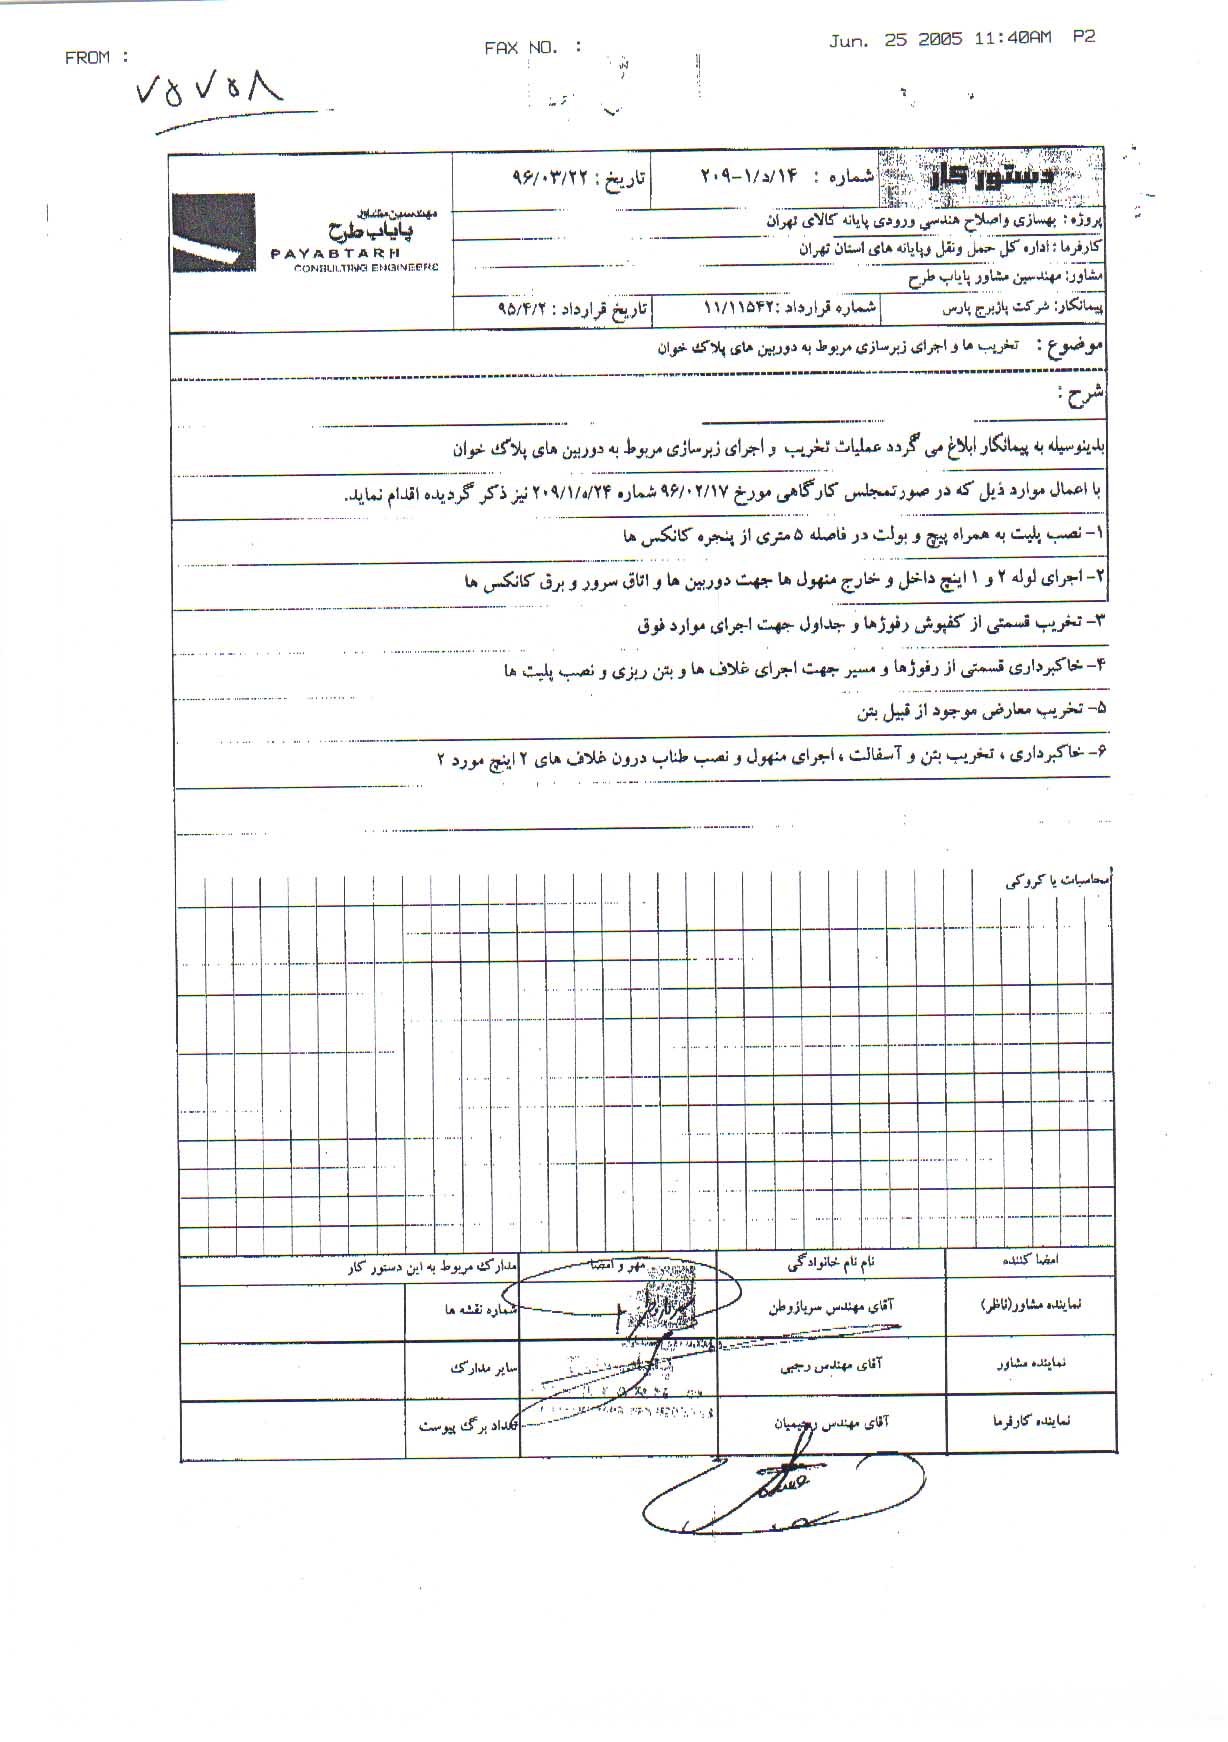 FROM :
FAX NO. :
Jun. 25 2005 11:40AM P2
۷۵۷۵۸
دستور کار
شماره : ۲۰۹-۱/د/۱۴
تاریخ : ۹۶/۰۳/۲۲
مهندسین مشاور
پایاب طرح
PAYABTARH
CONSULTING ENGINEERS
پروژه : بهسازی واصلاح هندسی ورودی پایانه کالای تهران
کارفرما : اداره کل حمل ونقل وپایانه های استان تهران
مشاور: مهندسین مشاور پایاب طرح
پیمانکار: شرکت پازبرج پارس
شماره قرارداد :۱۱/۱۱۵۴۲
تاریخ قرارداد : ۹۵/۴/۲
موضوع : تخریب ها و اجرای زیرسازی مربوط به دوربین های پلاک خوان
شرح :
بدینوسیله به پیمانکار ابلاغ می گردد عملیات تخریب و اجرای زیرسازی مربوط به دوربین های پلاک خوان
با اعمال موارد ذیل که در صورتمجلس کارگاهی مورخ ۹۶/۰۲/۱۷ شماره ۲۰۹/۱/ه/۲۴ نیز ذکر گردیده اقدام نماید.
۱- نصب پلیت به همراه پیچ و بولت در فاصله ۵ متری از پنجره کانکس ها
۲- اجرای لوله ۲ و ۱ اینچ داخل و خارج منهول ها جهت دوربین ها و اتاق سرور و برق کانکس ها
۳- تخریب قسمتی از کفپوش رفوژها و جداول جهت اجرای موارد فوق
۴- خاکبرداری قسمتی از رفوژها و مسیر جهت اجرای غلاف ها و بتن ریزی و نصب پلیت ها
۵- تخریب معارض موجود از قبیل بتن
۶- خاکبرداری ، تخریب بتن و آسفالت ، اجرای منهول و نصب طناب درون غلاف های ۲ اینچ مورد ۲
محاسبات یا کروکی
امضا کننده
نام نام خانوادگی
مهر و امضا
مدارک مربوط به این دستور کار
نماینده مشاور(ناظر)
آقای مهندس سربازوطن
شماره نقشه ها
نماینده مشاور
آقای مهندس رجبی
سایر مدارک
نماینده کارفرما
آقای مهندس رحیمیان
تعداد برگ پیوست